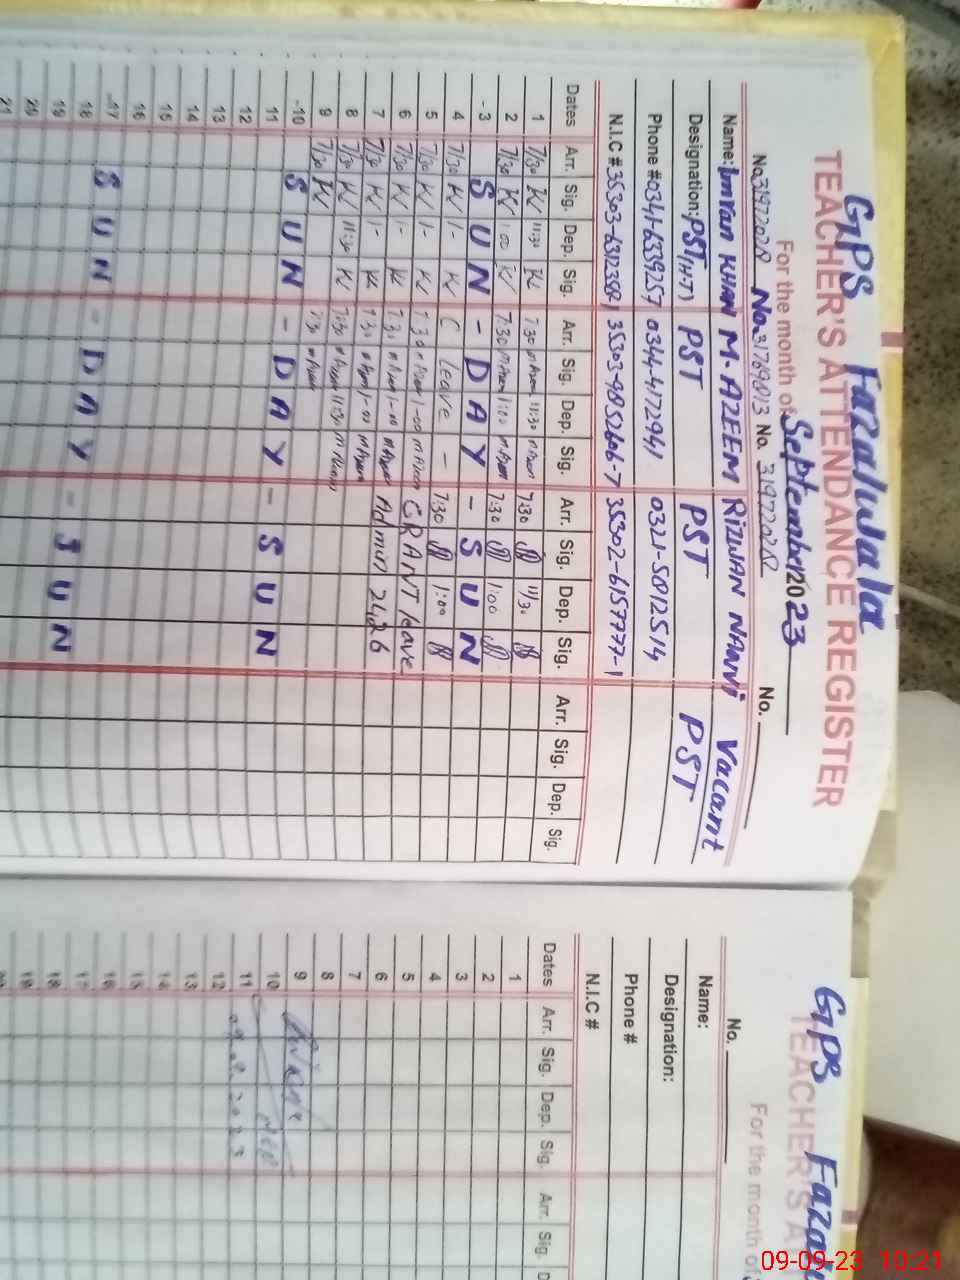 GPS Fazalwala
TEACHER'S ATTENDANCE REGISTER
For the month of September 2023
No. 31972028 No. 31769813 No. 31972028 No.
Name: Imran KHAN M. AZEEM RIZWAN NANNI Vacant
Designation: PST (H.T) PST PST PST
Phone # 0341-6339257 0344-4172941 0321-5812514
N.I.C # 35303-9852606-7 35302-6157777-1
Dates Arr. Sig. Dep. Sig. Arr. Sig. Dep. Sig. Arr. Sig. Dep. Sig. Arr. Sig. Dep. Sig.
1 7/30 11:30 7:30 11:30 7:30 11/30
2 7/30 1:00 7:30 1:00 7:30 1:00
3 SUN - DAY - SUN
4 7/30 1- C leave - 7:30 1:00
5 7/30 1- 7:30 1-00 GRANT leave
6 7/30 1- 7:30 1-00 Admin 2426
7 7/30 1- 7:30 1-00
8 7/30 11:30 7:30 11:30
9 7/30 7:30
10 SUN - DAY - SUN
11
12
13
14
15
16
17 SUN - DAY - SUN
18
19
20
21
GPS
TEACHER'S A
For the month of
No.
Name:
Designation:
Phone #
N.I.C #
Dates Arr. Sig. Dep. Sig. Arr. Sig. D
1
2
3
4
5
6
7
8
9
10
11
12
13
14
15
16
17
18
19
09-09-23 10:21